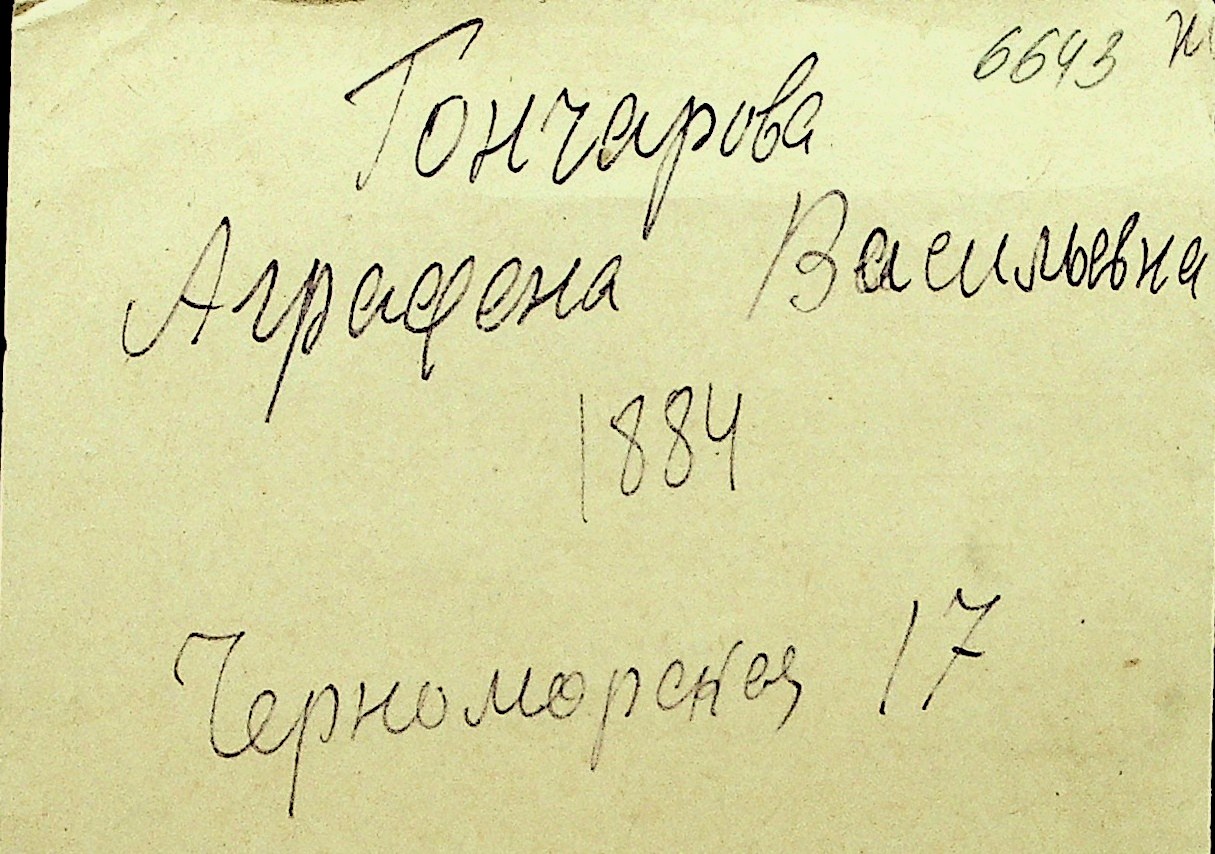 6643
Гончарова
Аграфена Васильевна
1884
Черноморская 17